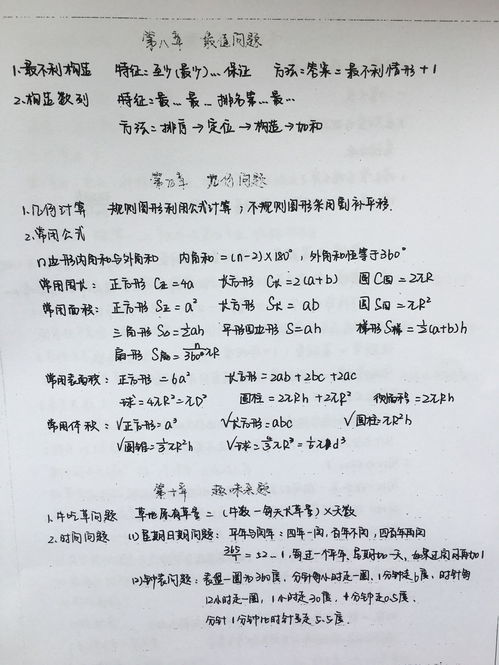 第八章 最值问题
1.最不利构造 特征=至少(最少)…保证 方法=答案=最不利情形+1
2.构造数列 特征=最…最…排名第…最…
方法=排序→定位→构造→加和
第九章 几何问题
1.几何计算 规则图形利用公式计算;不规则图形采用割补平移.
2.常用公式
(1)n边形内角和与外角和 内角和=(n-2)×180°,外角和恒等于360°
常用周长:正方形C正=4a 长方形C长=2(a+b) 圆C圆=2πR
常用面积:正方形S正=a² 长方形S长=ab 圆S圆=πR²
三角形S△=½ah 平形四边形S=ah 梯形S梯=½(a+b)h
扇形S扇=n/360°πR
常用表面积:正方形=6a² 长方形=2ab+2bc+2ac
球=4πR²=πD² 圆柱=2πRh+2πR² 侧面积=2πRh
常用体积:V正方形=a³ V长方形=abc V圆柱=πR²h
V圆锥=⅓πR²h V球=4/3πR³=1/6πd³
第十章 趣味杂题
1.牛吃草问题 草地原有草量=(牛数-每天长草量)×天数
2.时间问题 (1)星期日期问题:平年与闰年:四年一闰,百年不闰,四百年再闰
365/7=52…1,每过一个平年,星期加一天,如果过闰月再加1
(2)钟表问题:表盘一圈为360度,分针每小时走一圈、1分钟走6度,时针每
12小时走一圈,1小时走30度,1分钟走0.5度.
分针1分钟比时针多走5.5度.